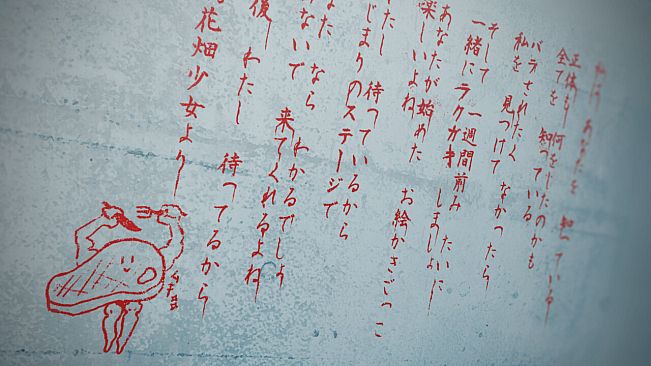 私は あなたを 知っている
正体も 何をしたのかも
全てを 知っている
バラされたく なかったら
私を 見つけて
そして 一週間前み たいに
一緒に ラクガキ しましょー
あなたが始めた お絵かきごっこ
楽しいよね
たし 待っているから
じまりのステージで
なた なら わかるでしょ
ないで 来てくれるよね
後ー わたし 待ってるから
花畑少女よりー